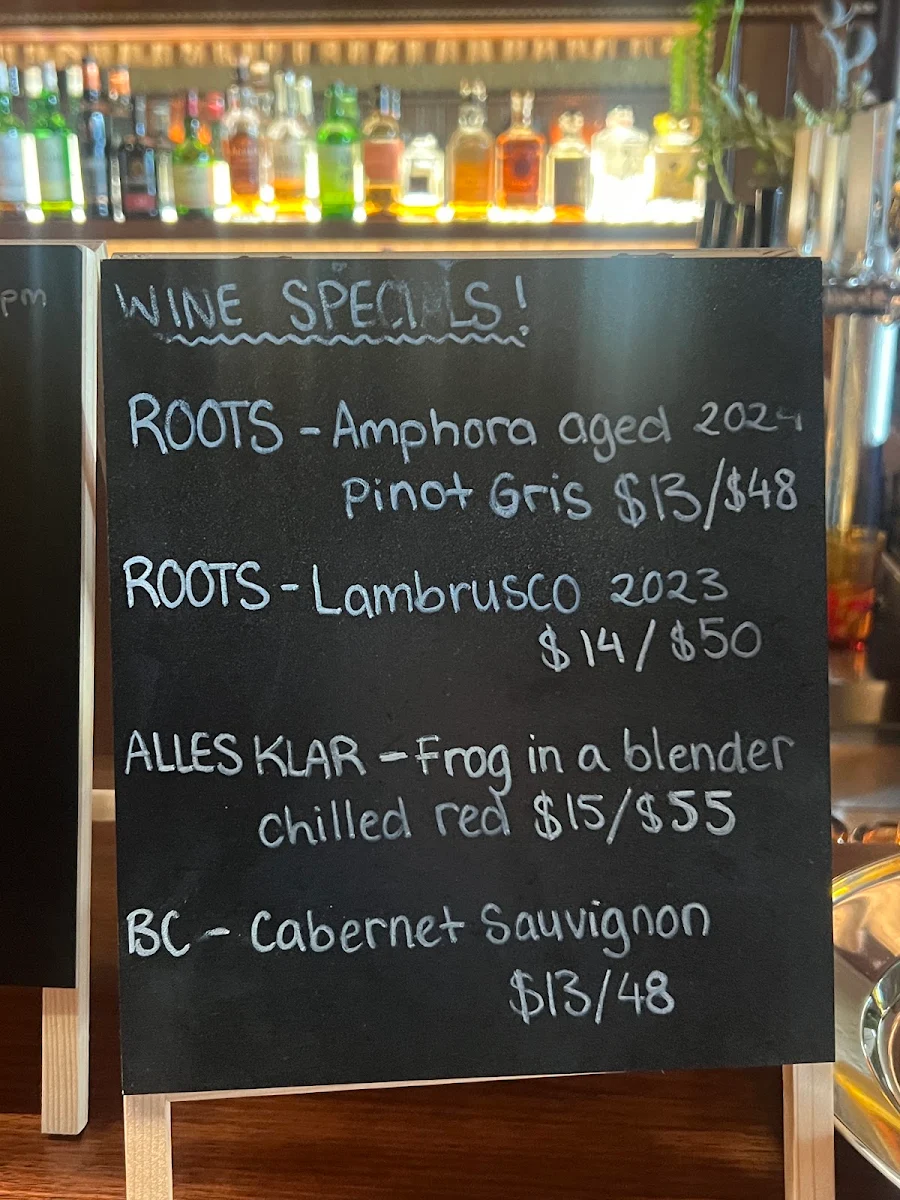 pm
WINE SPECIALS!
ROOTS - Amphora aged 2024
Pinot Gris $13/$48
ROOTS - Lambrusco 2023
$14/$50
ALLES KLAR - Frog in a blender
chilled red $15/$55
BC - Cabernet Sauvignon
$13/48